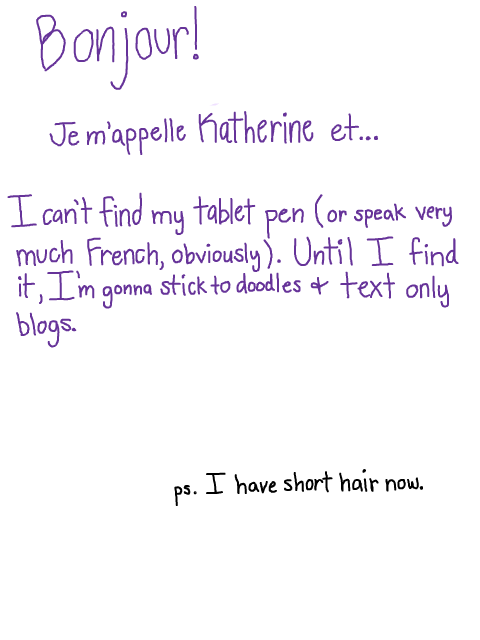 Bonjour!
Je m'appelle Katherine et...
I can't find my tablet pen (or speak very
much French, obviously). Until I find
it, I'm gonna stick to doodles & text only
blogs.
ps. I have short hair now.